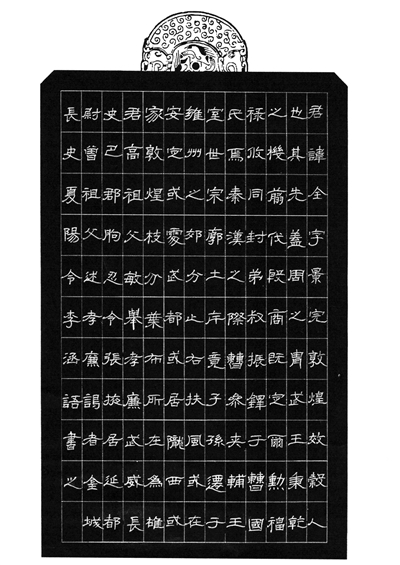 君諱全字景完敦煌效穀人
也其先蓋周之冑武王秉乾
之機翦伐殷商既定爾勳福
祿攸同封弟叔振鐸于曹國
氏焉秦漢之際曹參夾輔王
室世宗廓土斥竟子孫遷于
雍州之郊分止右扶風或在
安定或處武都或居隴西或
家敦煌枝分葉布所在為雄
君高祖父敏舉孝廉武威長
史巴郡朐忍令張掖居延都
尉曾祖父述孝廉謁者金城
長史夏陽令李涵語書之